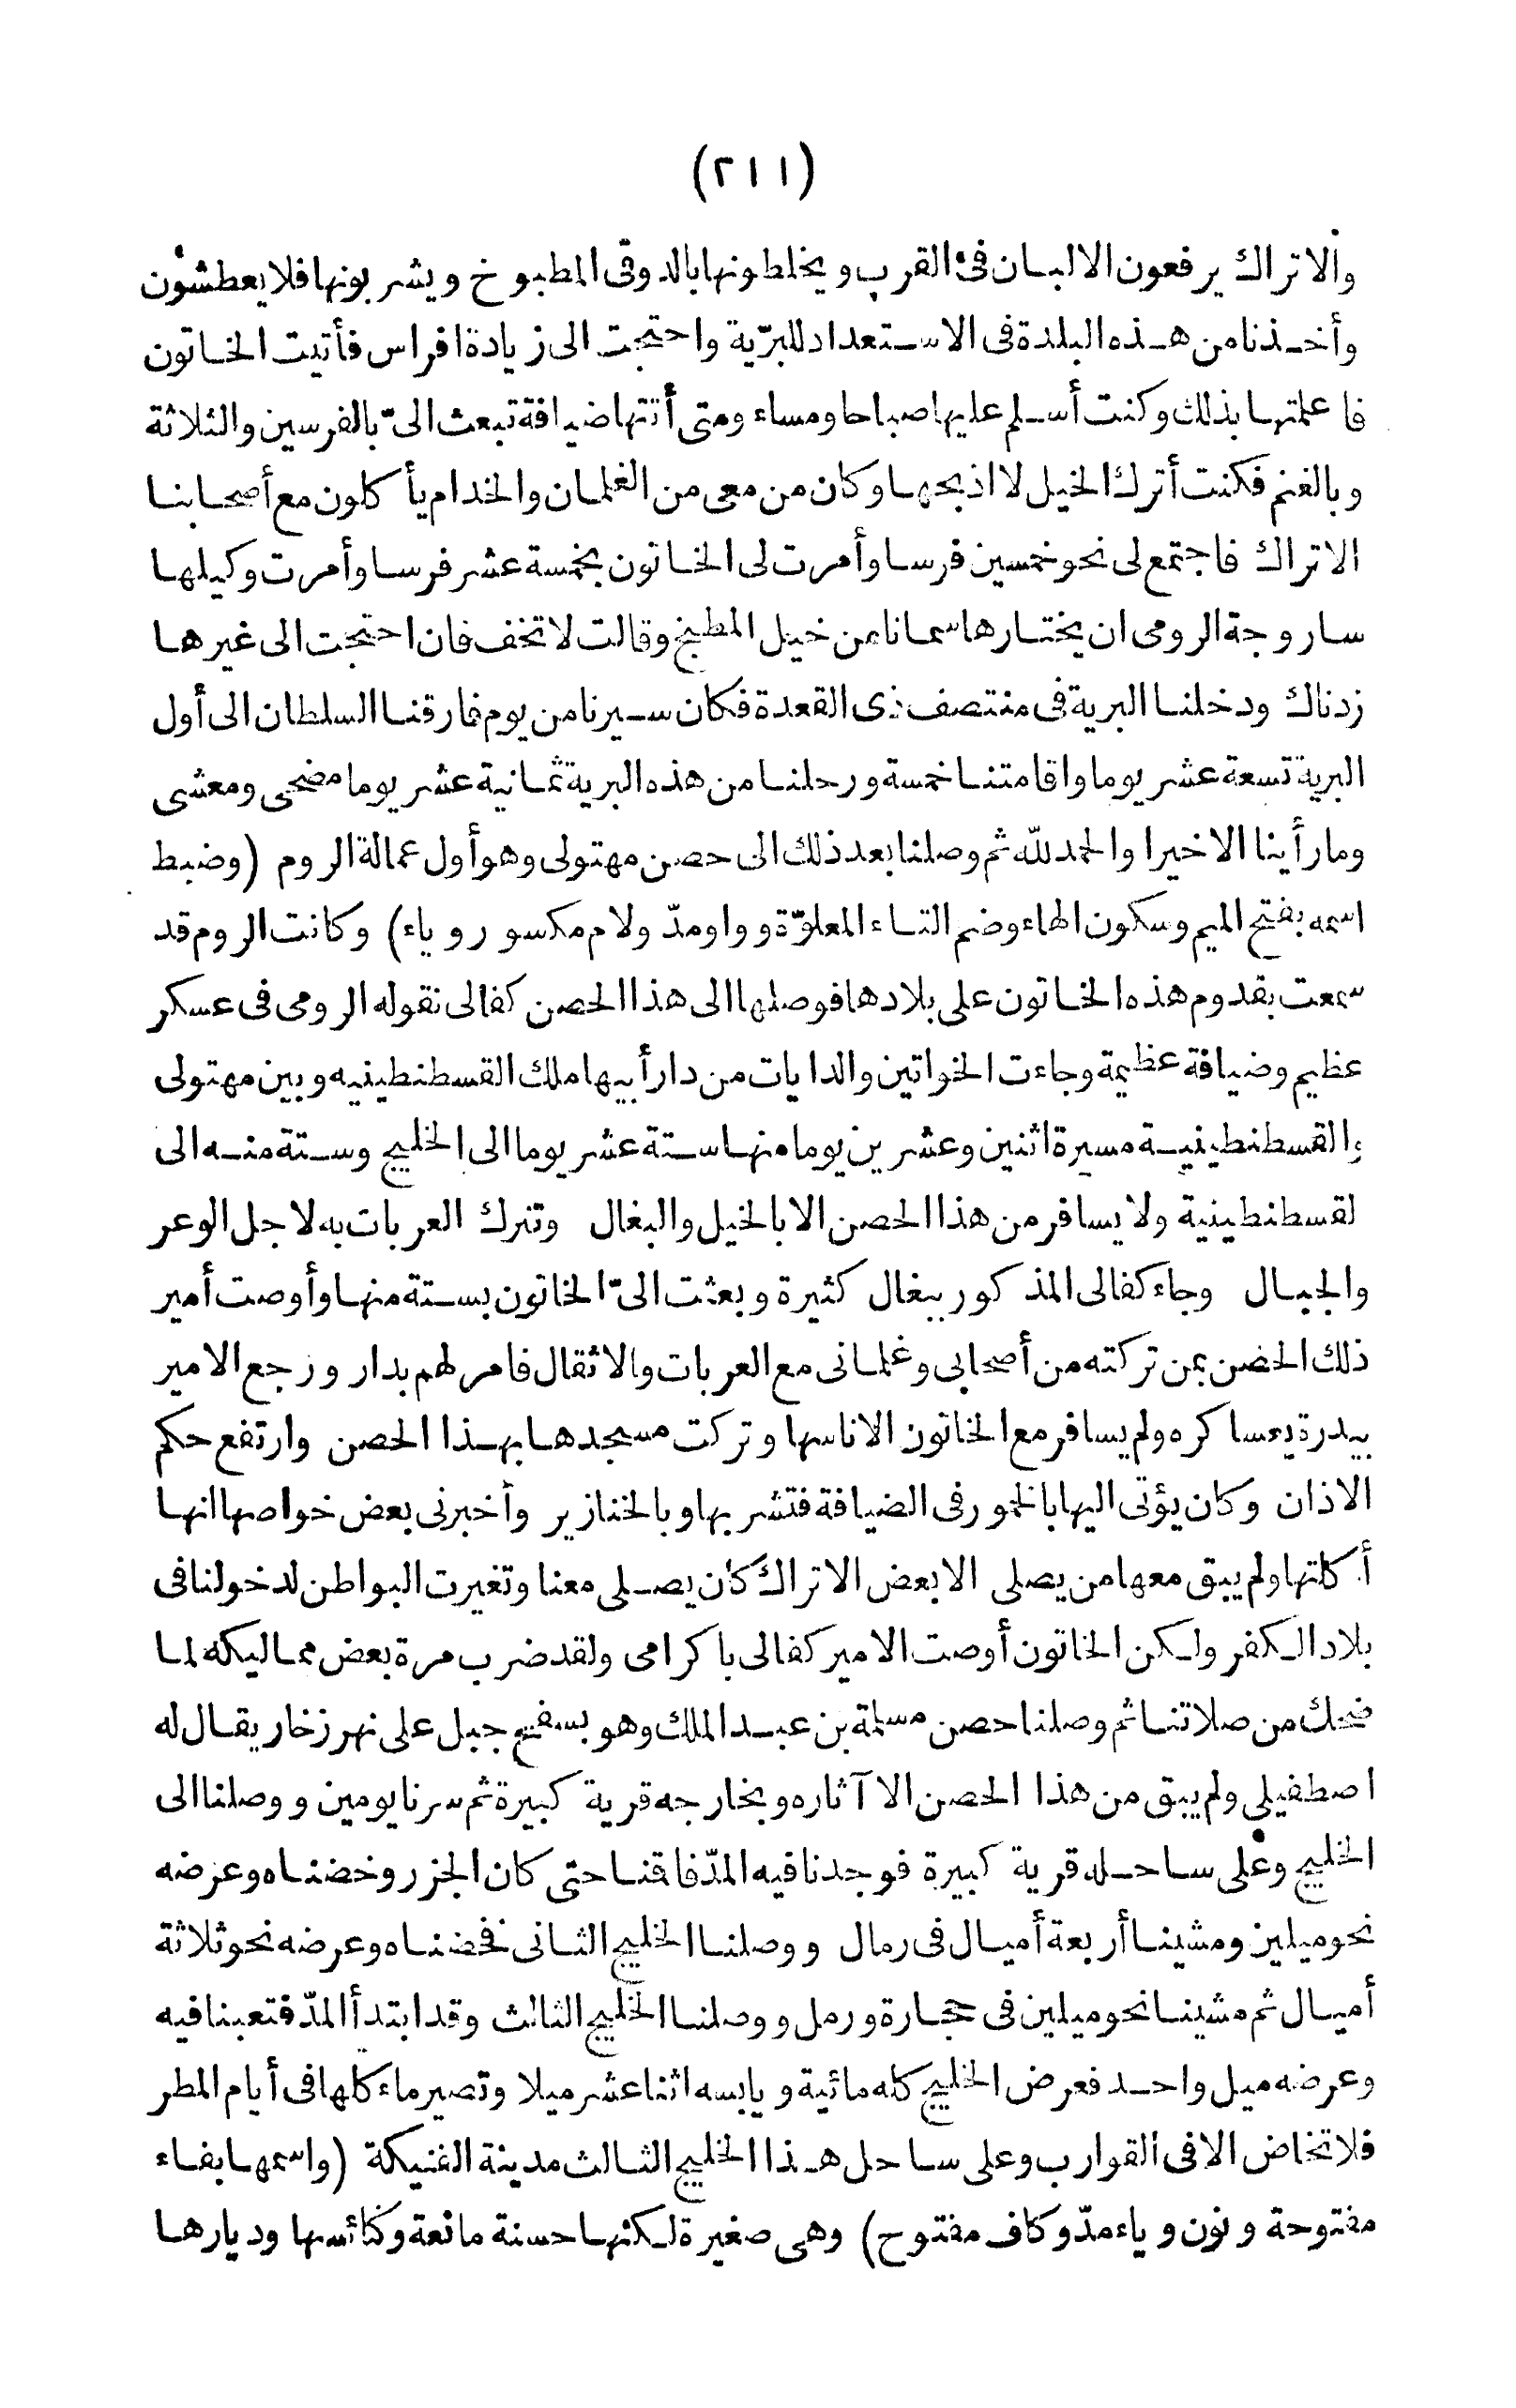 (٢١١)
والاتراك يرفعون الالبان فى القرب ويخلطونها بالدوقى المطبوخ ويشربونها فلا يعطشون
وأخذنا من هذه البلدة فى الاستعداد للبرّية واحتجت الى زيادة افراس فأتيت الخاتون
فاعلمتها بذلك وكنت أسلم عليها صباحا ومساء ومتى أتتها ضيافة تبعث الىّ بالفرسين والثلاثة
وبالغنم فكنت أترك الخيل لا اذبحها وكان من معى من الغلمان والخدام يأكلون مع أصحابنا
الاتراك فاجتمع لى نحو خمسين فرسا وأمرت لى الخاتون بخمسة عشر فرسا وأمرت وكيلها
ساروجة الرومى ان يختارها سمانا من خيل المطبخ وقالت لا تخف فان احتجت الى غيرها
زدناك ودخلنا البرية فى منتصف ذى القعدة فكان سيرنا من يوم فارقنا السلطان الى أول
البرية تسعة عشر يوما واقامتنا خمسة ورحلنا من هذه البرية ثمانية عشر يوما مضحى ومعشى
وما رأينا الا خيرا والحمد لله ثم وصلنا بعد ذلك الى حصن مهتولى وهو أول عمالة الروم (وضبط
اسمه بفتح الميم وسكون الهاء وضم التاء المعلوّة وواومدّ ولام مكسور وياء) وكانت الروم قد
سمعت بقدوم هذه الخاتون على بلادها فوصلها الى هذا الحصن كفالى نقوله الرومى فى عسكر
عظيم وضيافة عظيمة وجاءت الخواتين والدايات من دار أبيها ملك القسطنطينيه وبين مهتولى
والقسطنطينية مسيرة اثنين وعشرين يوما منها ستة عشر يوما الى الخليج وستة منه الى
لقسطنطينية ولا يسافر من هذا الحصن الا بالخيل والبغال وتترك العربات به لاجل الوعر
والجبال وجاء كفالى المذكور ببغال كثيرة وبعثت الىّ الخاتون بستة منها وأوصت أمير
ذلك الحصن بمن تركته من أصحابى وغلمانى مع العربات والاثقال فامر لهم بدار ورجع الامير
بيدرة بعساكره ولم يسافر مع الخاتون الاناسها وتركت مسجدها بهذا الحصن وارتفع حكم
الاذان وكان يؤتى اليها بالخمور فى الضيافة فتشربها وبالخنازير وأخبرنى بعض خواصها انها
أكلتها ولم يبق معها من يصلى الا بعض الاتراك كان يصلى معنا وتغيرت البواطن لدخولنا فى
بلاد الكفر ولكن الخاتون أوصت الامير كفالى باكرامى ولقد ضرب مرة بعض مماليكه لما
ضحك من صلاتنا ثم وصلنا حصن مسلمة بن عبد الملك وهو بسفح جبل على نهر زخار يقال له
اصطفيلى ولم يبق من هذا الحصن الا آثاره وبخارجه قرية كبيرة ثم سرنا يومين ووصلنا الى
الخليج وعلى ساحله قرية كبيرة فوجدنا فيه المدّ فاقنا حتى كان الجزر وخضناه وعرضه
نحو ميلين ومشينا أربعة أميال فى رمال ووصلنا الخليج الثانى فخضناه وعرضه نحو ثلاثة
أميال ثم مشينا نحو ميلين فى حجارة ورمل ووصلنا الخليج الثالث وقد ابتدأ المدّ فتعبنا فيه
وعرضه ميل واحد فعرض الخليج كله مائية ويابسه اثنا عشر ميلا وتصير ماء كلها فى أيام المطر
فلا تخاض الا فى القوارب وعلى ساحل هذا الخليج الثالث مدينة الفنيكة (واسمها بفاء
مفتوحة ونون وياء مدّ وكاف مفتوح) وهى صغيرة لكنها حسنة مانعة وكنائسها وديارها